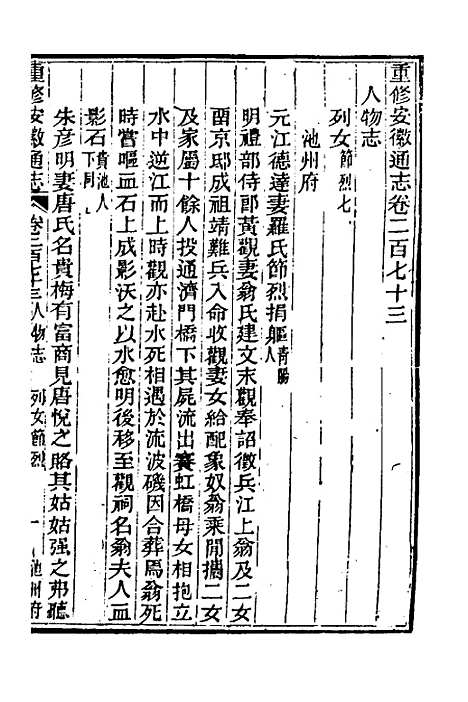 重修安徽通志卷二百七十三
人物志
列女節烈七
池州府
元江德達妻羅氏節烈捐軀青陽人
明禮部侍郎黃觀妻翁氏建文末觀奉詔徵兵江上翁及二女
畱京邸成祖靖難兵入命收觀妻女給配象奴翁乘閒攜二女
及家屬十餘人投通濟門橋下其屍流出賽虹橋母女相抱立
水中逆江而上時觀亦赴水死相遇於流波磯因合葬焉翁死
時嘗嘔血石上成影沃之以水愈明後移至觀祠名翁夫人血
影石貴池人下同
朱彦明妻唐氏名貴梅有富商見唐悅之賂其姑姑强之弗聽
重修安徽通志 卷二百七十三人物志 列女節烈 一 池州府